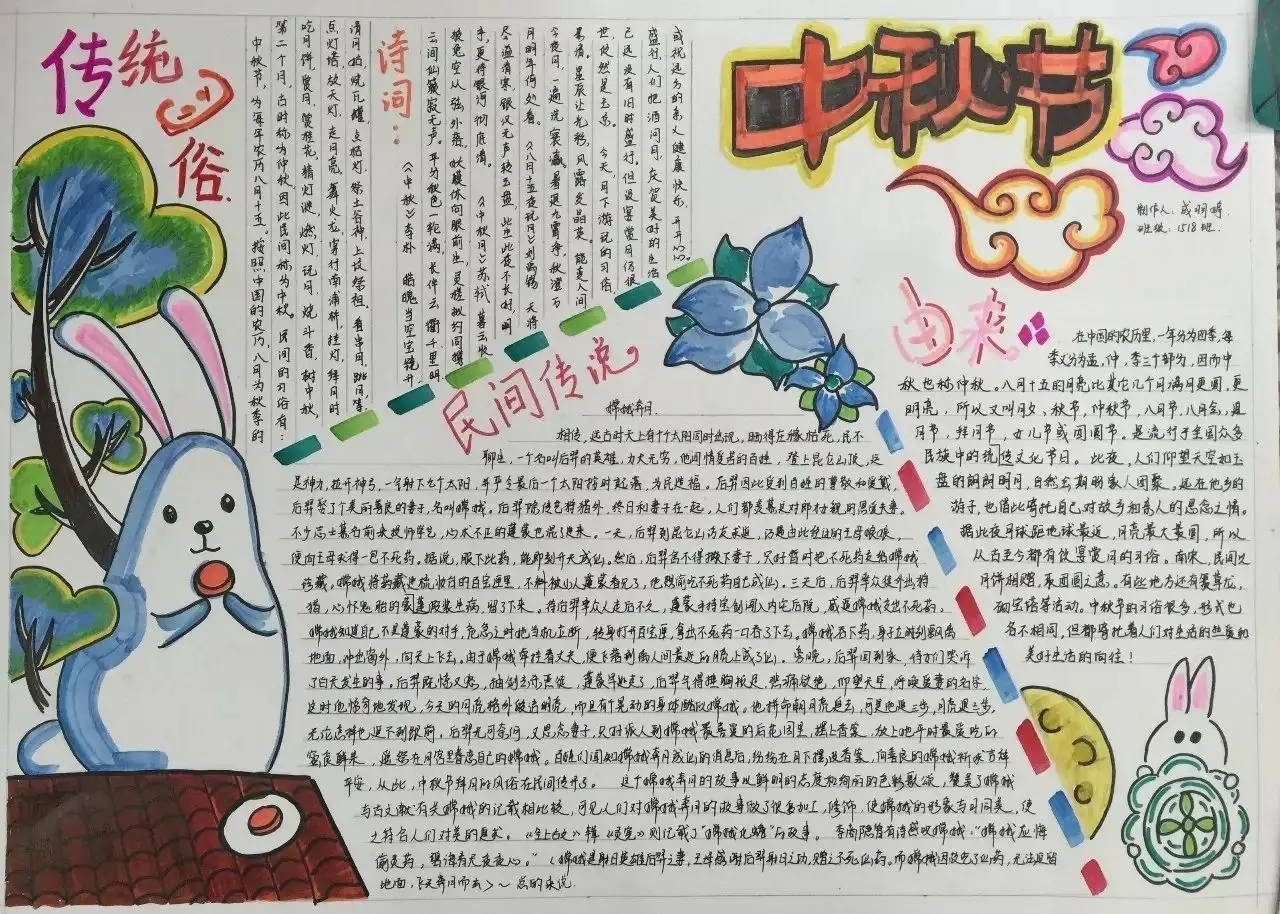 中秋节
制作人:
班级:1518班.
传统
习俗.
中秋节,为每年农历八月十五。按照中国的农历,八月为秋季的
第二个月,古时称为仲秋,因此民间称为中秋。民间的习俗有:
吃月饼,赏月,赏桂花,猜灯谜,燃灯,玩月,烧斗香,树中秋,
点灯塔,放天灯,走月亮,舞火龙,挂灯,拜月时
烧瓦罐,点桔灯,祭土谷神,上坟祭祖,看串月,跳月等。
诗词:
《中秋》李朴 皓魄当空宝镜升
云间仙籁寂无声。平分秋色一轮满,长伴云衢千里明
狡兔空从弦外落,妖蟆休向眼前生,灵槎拟约同携
手,更待银河彻底清。《中秋月》苏轼 暮云收
尽溢清寒,银汉无声转玉盘,此生此夜不长好,明
月明年何处看。《八月十五夜玩月》刘禹锡 天将
今夜月,一遍洗寰瀛。暑退九霄净,秋澄万
景清。星辰让光彩,风露发晶英。能变人间
世,攸然是玉京。今天,月下游玩的习俗
已远没有旧时盛行。但设宴赏月仍很
盛行,人们把酒问月,庆贺美好的生活
或祝远方的亲人健康快乐,开开心心。
民间传说
嫦娥奔月.
相传,远古时天上有十个太阳同时出现,晒得庄稼枯死,民不
聊生,一个名叫后羿的英雄,力大无穷,他同情受苦的百姓,登上昆仑山顶,运
足神力,拉开神弓,一气射下九个太阳,并严令最后一个太阳按时起落,为民造福。后羿因此受到百姓的尊敬和爱戴,
后羿娶了个美丽善良的妻子,名叫嫦娥。后羿除传艺狩猎外,终日和妻子在一起,人们都羡慕这对郎才女貌的恩爱夫妻。
不少志士慕名前来投师学艺,心术不正的蓬蒙也混了进来。一天,后羿到昆仑山访友求道,巧遇由此经过的王母娘娘,
便向王母求得一包不死药。据说,服下此药,能即刻升天成仙。然后,后羿舍不得撇下妻子,只好暂时把不死药交给嫦娥
珍藏。嫦娥将药藏进梳妆台的百宝匣里,不料被小人蓬蒙看见了,他想偷吃不死药自己成仙。三天后,后羿率众徒外出狩
猎,心怀鬼胎的蓬蒙假装生病,留了下来。待后羿率众人走后不久,蓬蒙手持宝剑闯入内宅后院,威逼嫦娥交出不死药。
嫦娥知道自己不是蓬蒙的对手,危急之时她当机立断,转身打开百宝匣,拿出不死药一口吞了下去。嫦娥吞下药,身子立时飘离
地面,冲出窗外,向天上飞去。由于嫦娥牵挂着丈夫,便飞落到离人间最近的月亮上成了仙。傍晚,后羿回到家,侍女们哭诉
了白天发生的事。后羿既惊又怒,抽剑去杀恶徒,蓬蒙早逃走了,后羿气得捶胸顿足,悲痛欲绝,仰望天空,呼唤爱妻的名字,
这时他惊奇地发现,今天的月亮格外皎洁明亮,而且有个晃动的身体酷似嫦娥。他拼命朝月亮追去,可是他追三步,月亮退三步,
无论怎样也追不到跟前。后羿无可奈何,又思念妻子,只好派人到嫦娥最喜爱的后花园里,摆上香案,放上她平时最爱吃的
蜜食鲜果,遥祭在月宫里眷恋自己的嫦娥。百姓们闻知嫦娥奔月成仙的消息后,纷纷在月下摆设香案,向善良的嫦娥祈求吉祥
平安,从此,中秋节拜月的风俗在民间传开了。 这个嫦娥奔月的故事以鲜明的态度和绚丽的色彩歌颂,赞美了嫦娥
与古文献有关嫦娥的记载相比较,可见人们对嫦娥奔月的故事做了很多加工,修饰,使嫦娥的形象与月同美,使
之符合人们对美的追求。则记载了“嫦娥化蟾”的故事。李商隐曾有诗感叹嫦娥:“嫦娥应悔
偷灵药,碧海青天夜夜心。”
地面,飞天奔月而去
由来:
在中国的农历里,一年分为四季,每
季又分为孟,仲,季三个部分,因而中
秋也称仲秋。八月十五的月亮比其它几个月满月更圆,更
明亮,所以又叫月夕、秋节,仲秋节,八月节,八月会,追
月节,拜月节,女儿节或团圆节。是流行于全国众多
民族中的传统文化节日。此夜,人们仰望天空如玉
盘的朗朗明月,自然会期盼家人团聚。远在他乡的
游子,也借此寄托自己对故乡和亲人的思念之情。
据此夜月球距地球最近,月亮最大最圆,所以
从古至今都有饮宴赏月的习俗。南宋,民间以
月饼相赠,取团圆之意。有些地方还有舞草龙,
砌宝塔等活动。中秋节的习俗很多,形式也
各不相同,但都寄托着人们对生活的热爱和
美好生活的向往!